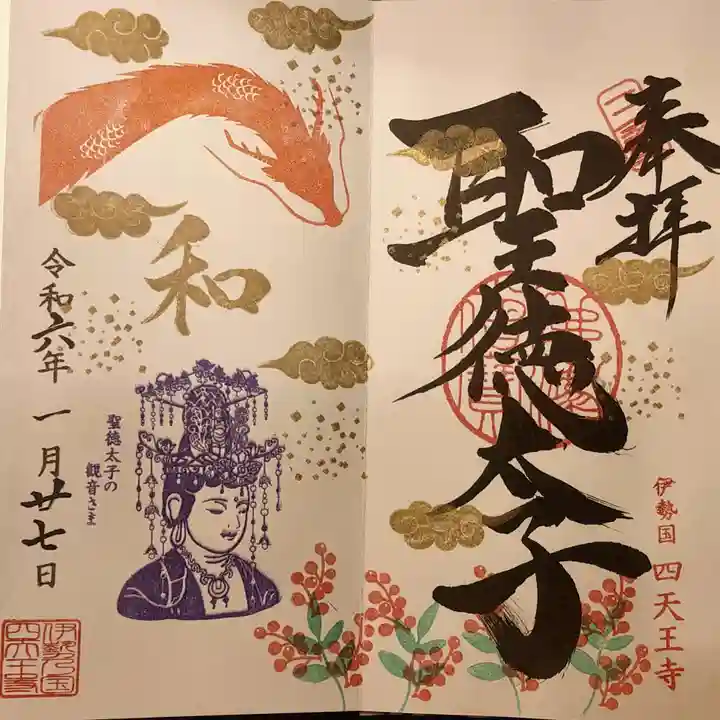 奉拝
聖徳太子
伊勢国 四天王寺
和
聖徳太子の
観音さま
令和六年 一月廿七日
伊勢之国
四天王寺